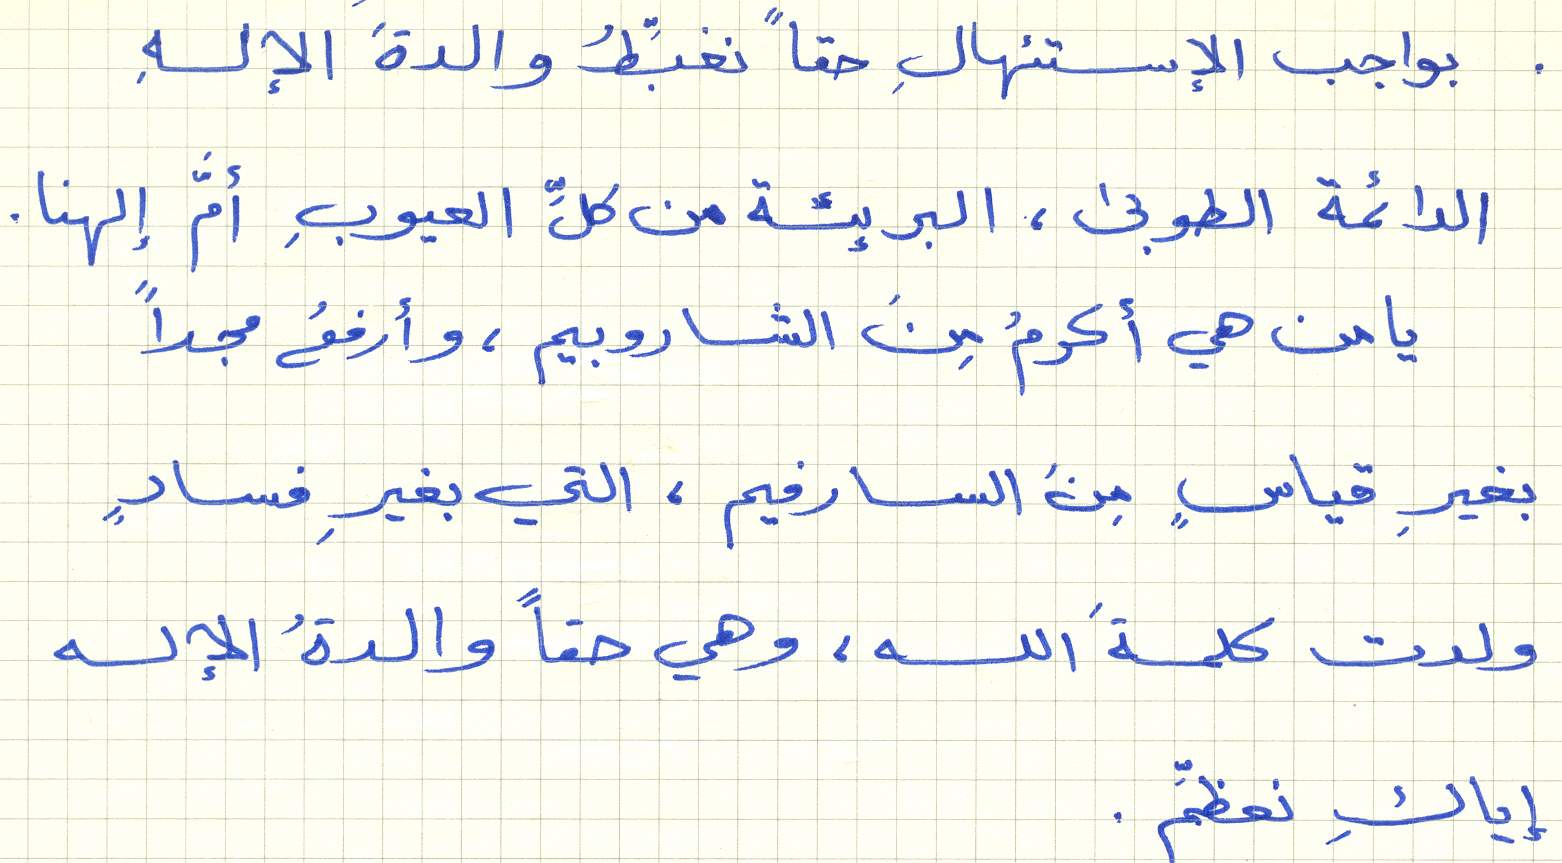 . بواجب الإستئهالِ حقاً نغبِّطُ والدةَ الإلـهِ
الدائمة الطوبى ، البريئة من كلِّ العيوبِ أمَّ إلهنا .
يا من هي أكرمُ مِنَ الشاروبيم ، وأرفعُ مجداً
بغيرِ قياسٍ مِنَ السارفيم ، التي بغيرِ فسادٍ
ولدت كلمةَ اللـه ، وهي حقاً والدةُ الإلـه
إياكِ نعظمِّ .